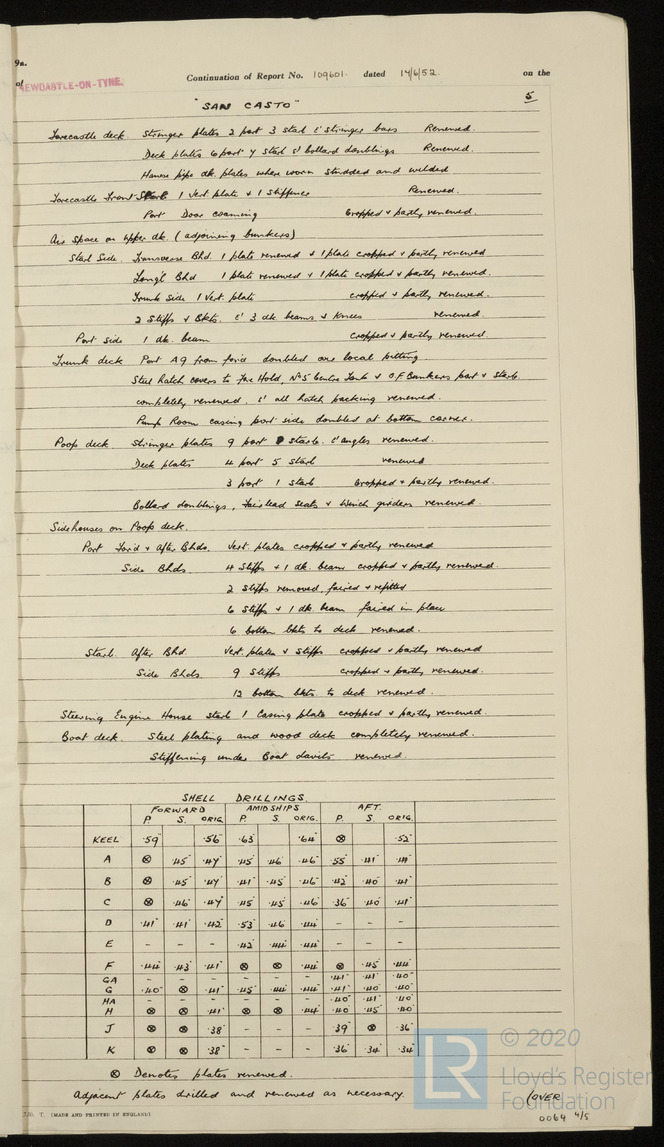 9a.
of
NEWCASTLE-ON-TYNE.
Continuation of Report No. 109601. dated 14/6/52. on the
"SAN CASTO"
5
Forecastle deck Stringer plates 2 port 3 starb c' stringer bars Renewed.
Deck plates 6 port 4 starb c' bollard doublings Renewed.
Hawse pipe dk. plates where worn studded and welded
Forecastle Front Starb 1 Vert plate & 1 stiffener Renewed.
Port Door coaming Cropped & partly renewed.
Air Space on Upper dk. (adjoining bunkers)
Starb Side Transverse Bhd. 1 plate renewed & 1 plate cropped & partly renewed
Long'l Bhd 1 plate renewed & 1 plate cropped & partly renewed.
Trunk side 1 Vert. plate cropped & partly renewed.
2 Stiffs & Bkts. c' 3 dk beams & knees renewed.
Port side 1 dk. beam cropped & partly renewed.
Trunk deck Port A9 from for'd doubled over local pitting.
Steel hatch covers to Fore Hold, No5 Centre Tank & O.F. Bunkers port & starb.
completely renewed, c' all hatch packing renewed.
Pump Room casing port side doubled at bottom corner.
Poop deck Stringer plates 9 port starb. c' angles renewed.
Deck plates 4 port 5 starb renewed
3 port 1 starb Cropped & partly renewed.
Bollard doublings, fairlead seats & winch girders renewed.
Sidehouses on Poop deck.
Port For'd & After Bhds. Vert. plates cropped & partly renewed
Side Bhds. 4 Stiffs & 1 dk. beam cropped & partly renewed.
2 Stiffs removed, faired & refitted
6 Stiffs & 1 dk. beam faired in place
6 bottom bkts to deck renewed.
Starb. After Bhd. Vert. plates & stiffs cropped & partly renewed
Side Bhds 9 Stiffs cropped & partly renewed.
12 bottom bkts to deck renewed.
Steering Engine House starb 1 Casing plate cropped & partly renewed.
Boat deck. Steel plating and wood deck completely renewed.
Stiffening under Boat davits renewed.
SHELL DRILLINGS.
FORWARD AMIDSHIPS AFT.
P. S. ORIG. P. S. ORIG. P. S. ORIG.
KEEL .59" .56" .63" .64" ⊗ .52"
A ⊗ .45" .47" .45" .46" .46" .55" .41" .41"
B ⊗ .45" .47" .41" .45" .46" .42" .40" .41"
C ⊗ .46" .47" .45" .45" .46" .36" .40" .41"
D .41" .41" .42" .53" .46" .44" - - -
E - - - .42" .44" .44" - - -
F .44" .43" .41" ⊗ ⊗ .44" ⊗ .45" .44"
GA - - - - - - .41" .41" .40"
G .40" ⊗ .41" .45" .44" .44" .41" .40" .40"
HA - - - - - - .40" .41" .40"
H ⊗ ⊗ .41" ⊗ ⊗ .44" .40 .45" .40"
J ⊗ ⊗ .38" - - - .39" ⊗ .36"
K ⊗ ⊗ .38" - - - .36" .34" .34"
⊗ Denotes plates renewed.
Adjacent plates drilled and renewed as necessary.
(OVER
0064 4/5
T. (MADE AND PRINTED IN ENGLAND)
LR
© 2020
Lloyd's Register
Foundation